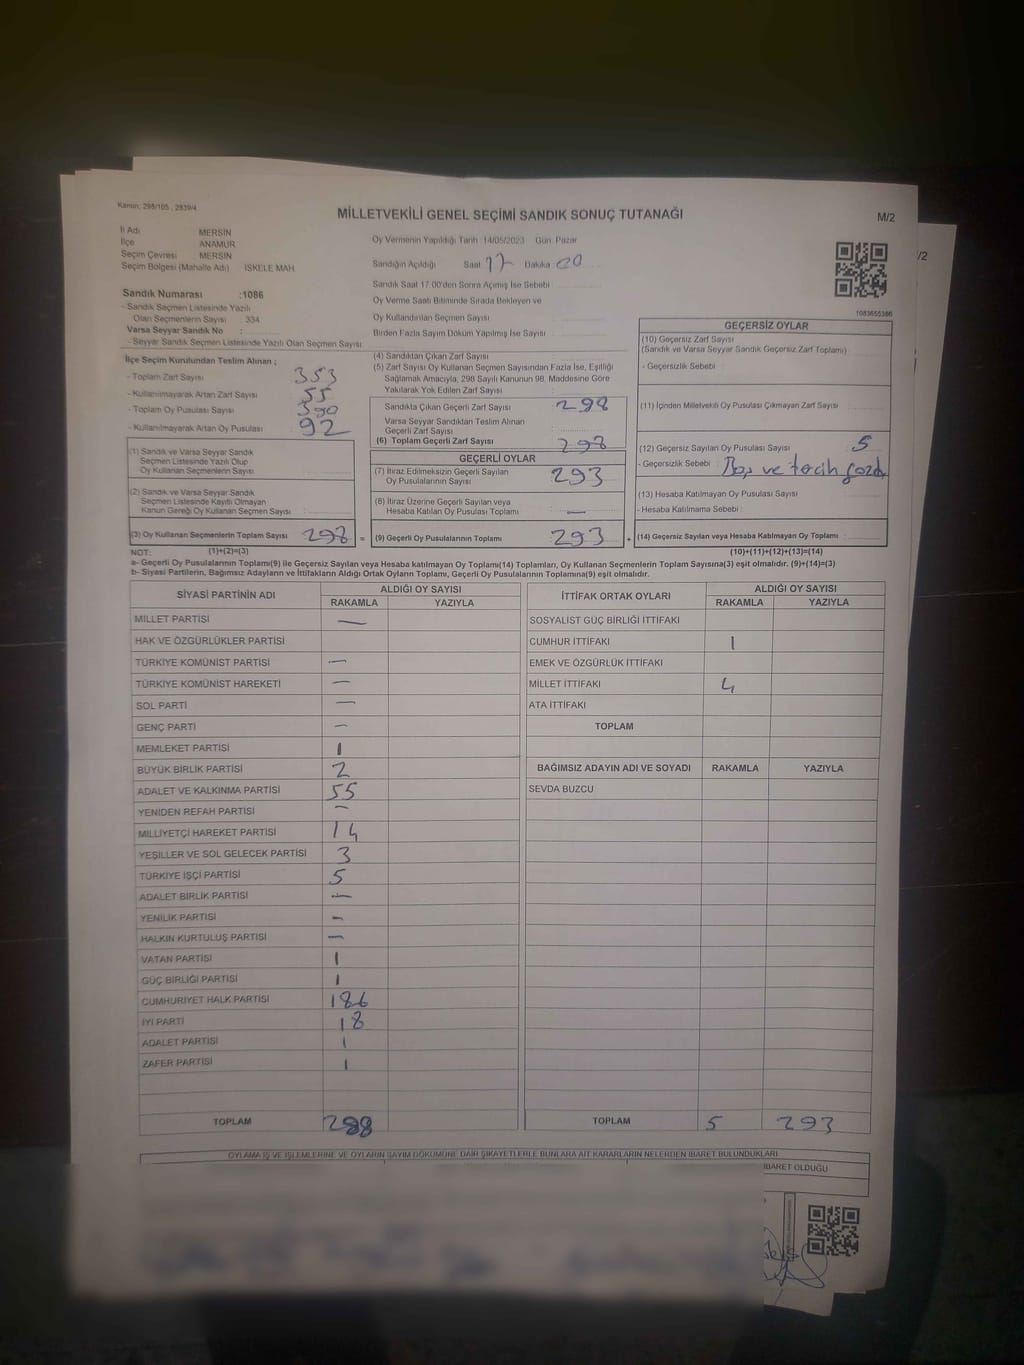 Kanun; 298/105 , 2839/4
MİLLETVEKİLİ GENEL SEÇİMİ SANDIK SONUÇ TUTANAĞI
M/2
/2
İl Adı MERSİN
İlçe ANAMUR
Seçim Çevresi MERSİN
Seçim Bölgesi (Mahalle Adı) İSKELE MAH
Oy Vermenin Yapıldığı Tarih 14/05/2023 Gün Pazar
Sandığın Açıldığı Saat 17 Dakika 00
Sandık Saat 17.00'den Sonra Açımış İse Sebebi
Oy Verme Saati Bitiminde Sırada Bekleyen ve
Oy Kullandırılan Seçmen Sayısı
Birden Fazla Sayım Döküm Yapılmış İse Sayısı
1083655366
Sandık Numarası :1086
- Sandık Seçmen Listesinde Yazılı
Olan Seçmenlerin Sayısı 334
Varsa Seyyar Sandık No :
- Seyyar Sandık Seçmen Listesinde Yazılı Olan Seçmen Sayısı
İlçe Seçim Kurulundan Teslim Alınan ;
- Toplam Zarf Sayısı 353
- Kullanılmayarak Artan Zarf Sayısı 55
- Toplam Oy Pusulası Sayısı 390
- Kullanılmayarak Artan Oy Pusulası 92
(1) Sandık ve Varsa Seyyar Sandık
Seçmen Listesinde Yazılı Olup
Oy Kullanan Seçmenlerin Sayısı
(2) Sandık ve Varsa Seyyar Sandık
Seçmen Listesinde Kayıtlı Olmayan
Kanun Gereği Oy Kullanan Seçmen Sayısı :
(3) Oy Kullanan Seçmenlerin Toplam Sayısı 298 =
(4) Sandıktan Çıkan Zarf Sayısı
(5) Zarf Sayısı Oy Kullanan Seçmen Sayısından Fazla İse, Eşitliği
Sağlamak Amacıyla, 298 Sayılı Kanunun 98. Maddesine Göre
Yakılarak Yok Edilen Zarf Sayısı
Sandıkta Çıkan Geçerli Zarf Sayısı 298
Varsa Seyyar Sandıktan Teslim Alınan
Geçerli Zarf Sayısı
(6) Toplam Geçerli Zarf Sayısı 298
GEÇERLİ OYLAR
(7) İtiraz Edilmeksizin Geçerli Sayılan
Oy Pusulalarının Sayısı 293
(8) İtiraz Üzerine Geçerli Sayılan veya
Hesaba Katılan Oy Pusulası Toplamı —
(9) Geçerli Oy Pusulalarının Toplamı 293 +
GEÇERSİZ OYLAR
(10) Geçersiz Zarf Sayısı
(Sandık ve Varsa Seyyar Sandık Geçersiz Zarf Toplamı)
- Geçersizlik Sebebi
(11) İçinden Milletvekili Oy Pusulası Çıkmayan Zarf Sayısı
(12) Geçersiz Sayılan Oy Pusulası Sayısı 5
- Geçersizlik Sebebi : Boş ve tercih
(13) Hesaba Katılmayan Oy Pusulası Sayısı
- Hesaba Katılmama Sebebi :
(14) Geçersiz Sayılan veya Hesaba Katılmayan Oy Toplamı :
NOT: (1)+(2)=(3) (10)+(11)+(12)+(13)=(14)
a- Geçerli Oy Pusulalarının Toplamı(9) ile Geçersiz Sayılan veya Hesaba katılmayan Oy Toplamı(14) Toplamları, Oy Kullanan Seçmenlerin Toplam Sayısına(3) eşit olmalıdır. (9)+(14)=(3)
b- Siyasi Partilerin, Bağımsız Adayların ve İttifakların Aldığı Ortak Oyların Toplamı, Geçerli Oy Pusulalarının Toplamına(9) eşit olmalıdır.
SİYASİ PARTİNİN ADI ALDIĞI OY SAYISI
RAKAMLA YAZIYLA
MİLLET PARTİSİ —
HAK VE ÖZGÜRLÜKLER PARTİSİ
TÜRKİYE KOMÜNİST PARTİSİ —
TÜRKİYE KOMÜNİST HAREKETİ —
SOL PARTİ —
GENÇ PARTİ —
MEMLEKET PARTİSİ 1
BÜYÜK BİRLİK PARTİSİ 2
ADALET VE KALKINMA PARTİSİ 55
YENİDEN REFAH PARTİSİ —
MİLLİYETÇİ HAREKET PARTİSİ 14
YEŞİLLER VE SOL GELECEK PARTİSİ 3
TÜRKİYE İŞÇİ PARTİSİ 5
ADALET BİRLİK PARTİSİ —
YENİLİK PARTİSİ —
HALKIN KURTULUŞ PARTİSİ —
VATAN PARTİSİ 1
GÜÇ BİRLİĞİ PARTİSİ 1
CUMHURİYET HALK PARTİSİ 186
İYİ PARTİ 18
ADALET PARTİSİ 1
ZAFER PARTİSİ 1
TOPLAM 288
İTTİFAK ORTAK OYLARI ALDIĞI OY SAYISI
RAKAMLA YAZIYLA
SOSYALİST GÜÇ BİRLİĞİ İTTİFAKI
CUMHUR İTTİFAKI 1
EMEK VE ÖZGÜRLÜK İTTİFAKI
MİLLET İTTİFAKI 4
ATA İTTİFAKI
TOPLAM
BAĞIMSIZ ADAYIN ADI VE SOYADI RAKAMLA YAZIYLA
SEVDA BUZCU
TOPLAM 5 293
OYLAMA İŞ VE İŞLEMLERİNE VE OYLARIN SAYIM DÖKÜMÜNE DAİR ŞİKAYETLERLE BUNLARA AİT KARARLARIN NELERDEN İBARET BULUNDUKLARI
İBARET OLDUĞU